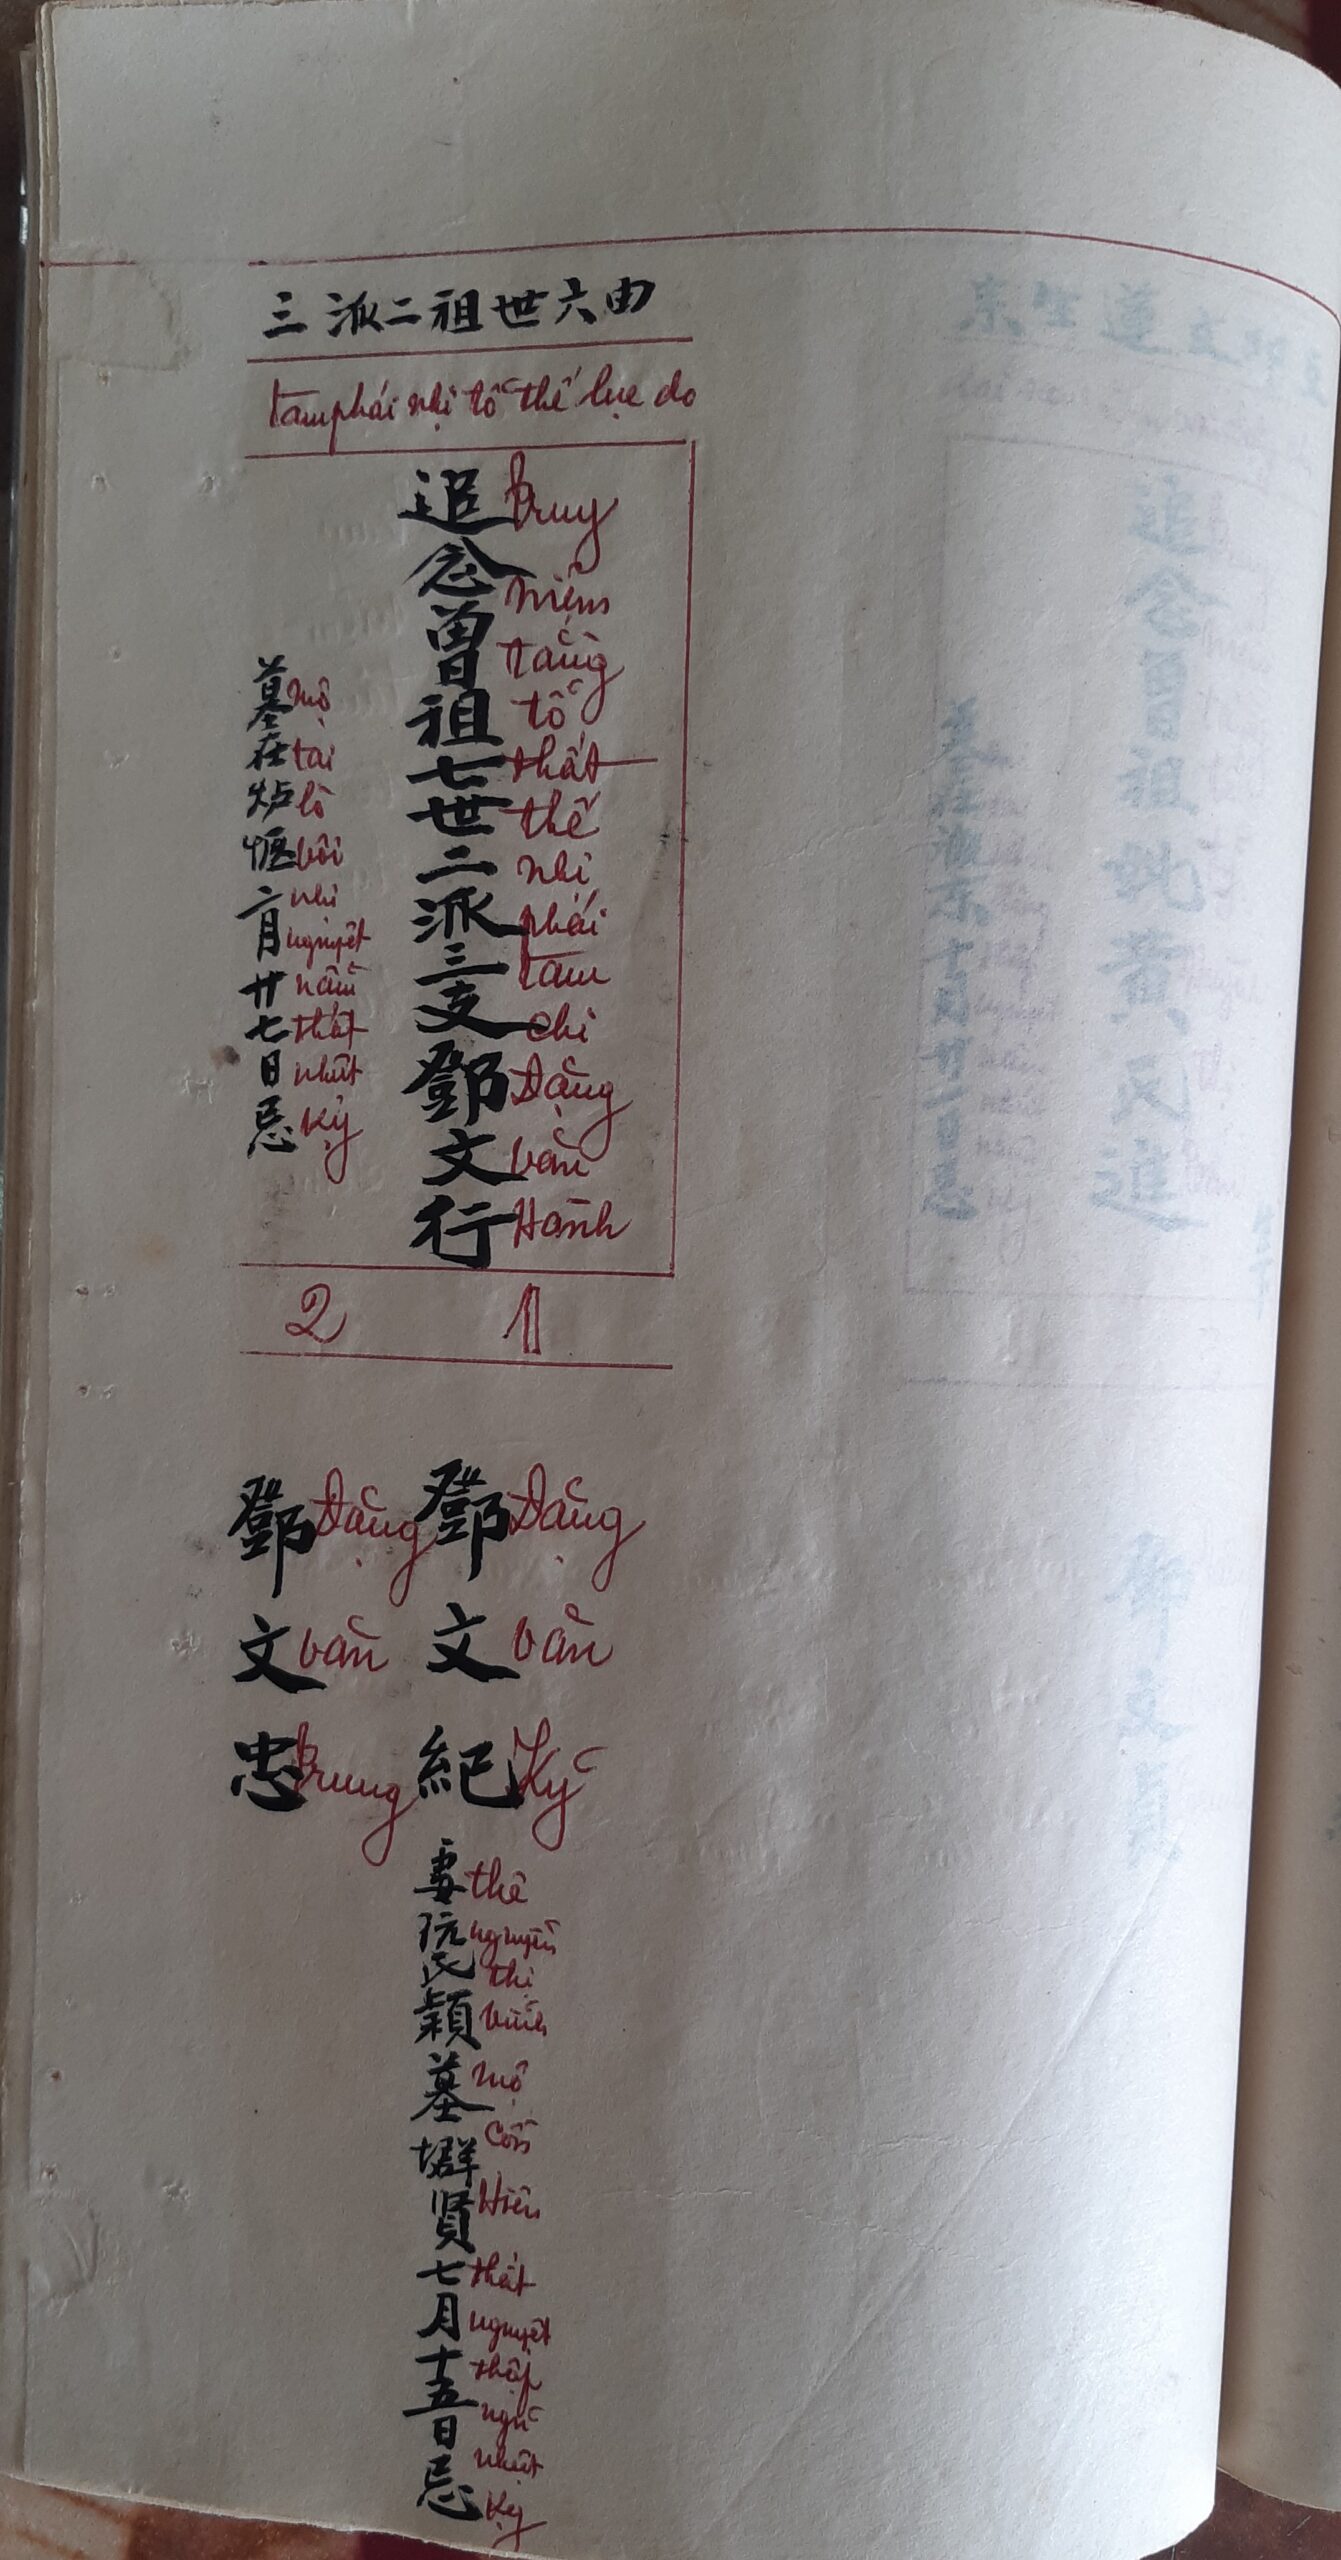 三派二祖世六由
tam phái nhị tổ thế lục do
追念曾祖七世二派三支鄧文行
truy niệm tằng tổ thất thế nhị phái tam chi Đặng văn Hành
墓在炉㤧二月廿七日忌
mộ tại lò bôi nhị nguyệt nấm thất nhựt kỵ
1
2
鄧文紀
Đặng văn Kỹ
妻阮氏穎墓壡賢七月十五日忌
thê nguyễn thị vĩnh mộ Cồn Hiền thất nguyệt thập ngũ nhựt kỵ
鄧文忠
Đặng văn trung